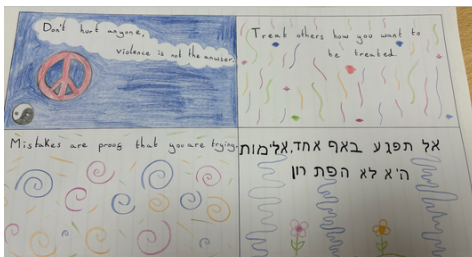 Don't hurt anyone,
violence is not the answer.
Treat others how you want to
be treated.
Mistakes are proof that you are trying.
אל תפגע באף אחד, אלימות
היא לא הפת רון